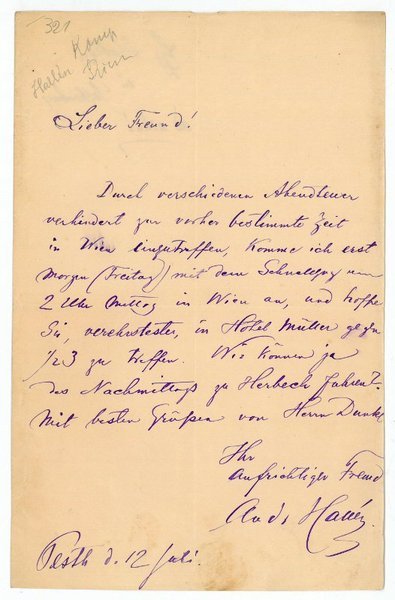 321
Komp
Hallén
Lieber Freund!
Durch verschiedenen Abendteuer
verhindert zur vorher bestimmte Zeit
in Wien einzutreffen, komme ich erst
Morgen (Freitag) mit dem Schnellzug um
2 Uhr Mittag in Wien an, und hoffe
Sie, verehrtester, in Hôtel Müller gegen
1/2 3 zu treffen. Wir können ja
des Nachmittags zu Herbeck fahren?
Mit besten Grüßen von Herrn Dunkl
Ihr
Aufrichtiger Freund
Ands Hallén
Pesth d. 12 Juli.